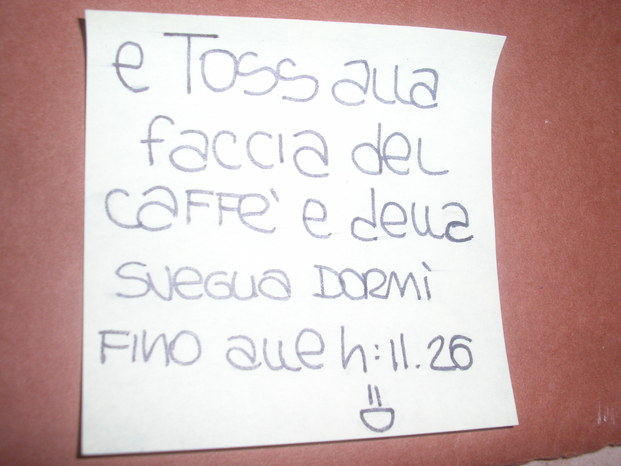 e Toss alla
faccia del
caffe' e della
sveglia DORMì
FINO alle h:11.26
=D